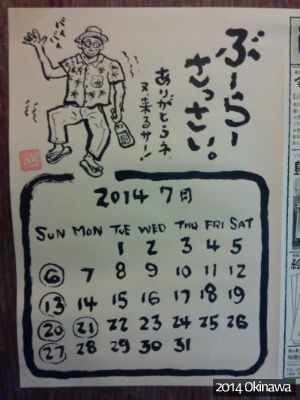 ぶーらー
さっさい。
ありがとうネ
又、来るサー!
2014 7月
SUN MON TUE WED THU FRI SAT
1 2 3 4 5
6 7 8 9 10 11 12
13 14 15 16 17 18 19
20 21 22 23 24 25 26
27 28 29 30 31
2014 Okinawa